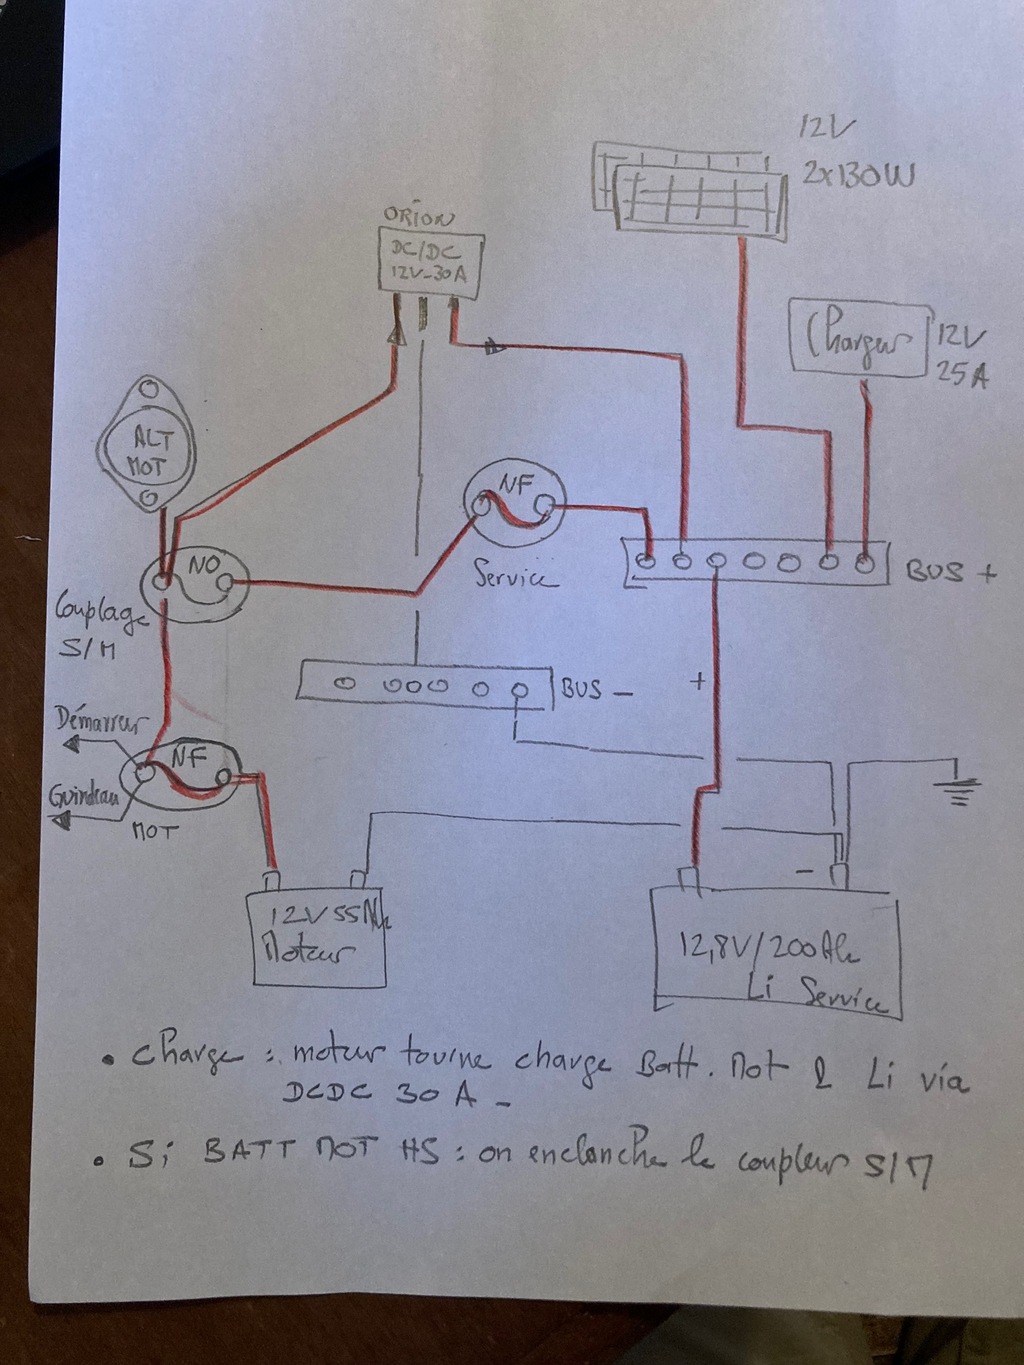 12V
2x130W
ORION
DC/DC
12V-30A
Charger
12V
25A
ALT
MOT
NO
NF
Service
BUS +
Couplage
S/M
BUS -
+
Démarreur
NF
Guindeau
MOT
-
12V 55Ah
Moteur
12,8V/200Ah
Li Service
• Charge : moteur tourne charge Batt. Mot & Li via
DCDC 30 A -
• Si BATT MOT HS : on enclanche le coupleur S/M